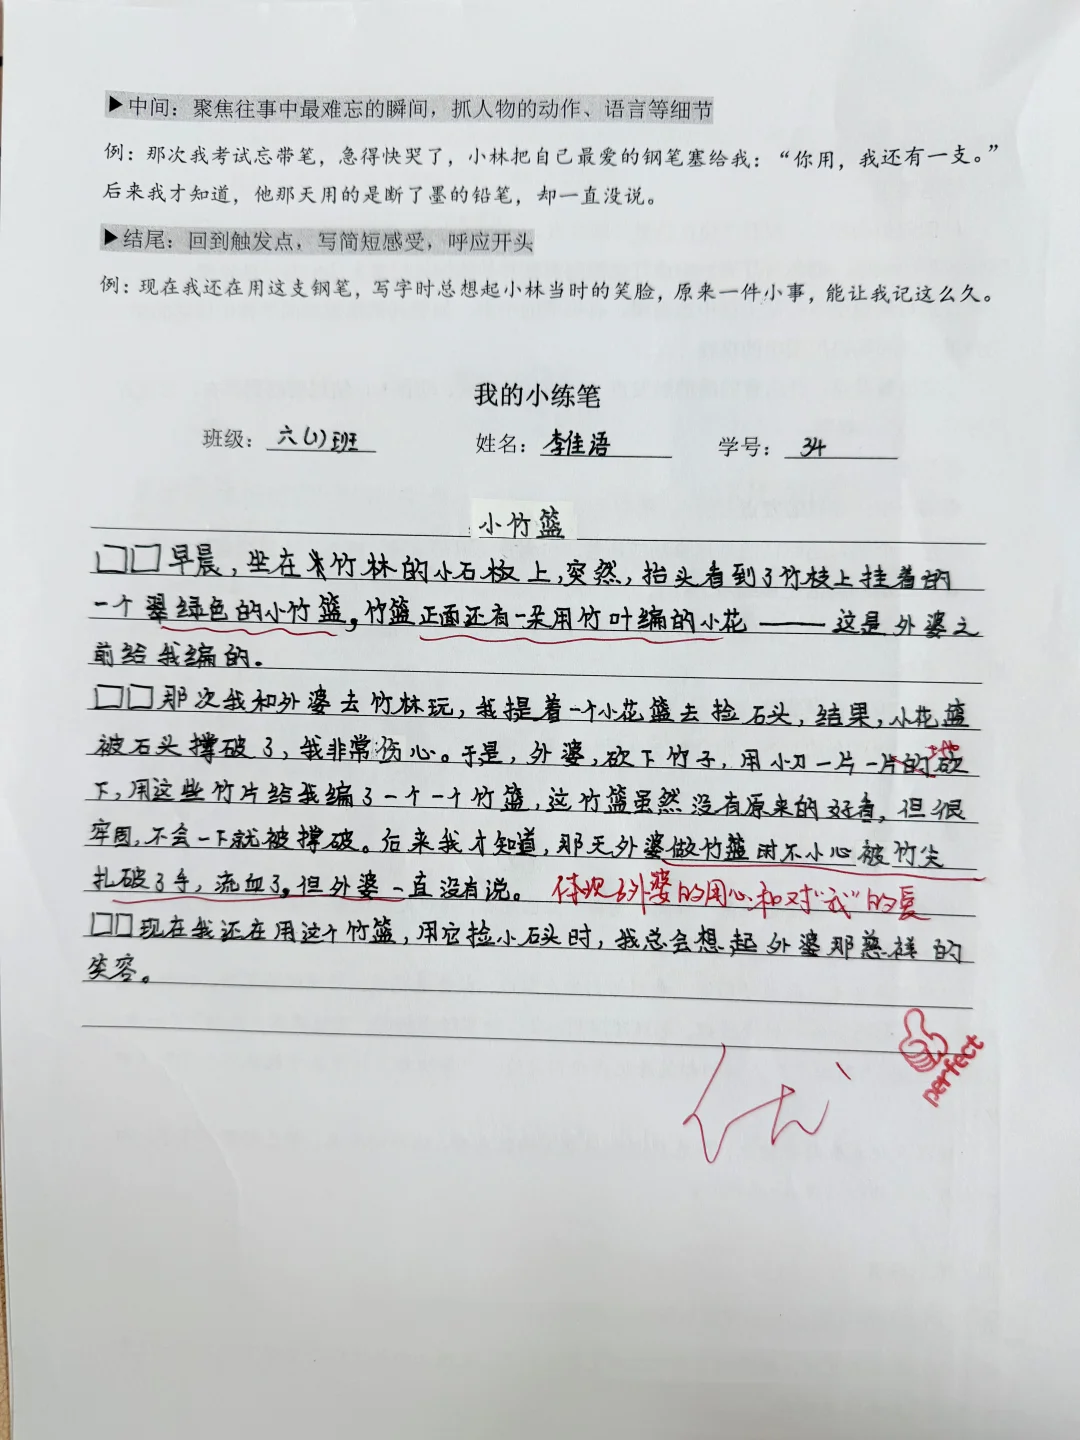 ▶中间：聚焦往事中最难忘的瞬间，抓人物的动作、语言等细节
例：那次我考试忘带笔，急得快哭了，小林把自己最爱的钢笔塞给我：“你用，我还有一支。”
后来我才知道，他那天用的是断了墨的铅笔，却一直没说。
▶结尾：回到触发点，写简短感受，呼应开头
例：现在我还在用这支钢笔，写字时总想起小林当时的笑脸，原来一件小事，能让我记这么久。
我的小练笔
班级：六(1)班 姓名：李佳语 学号：34
小竹篮
早晨，坐在竹林的小石板上，突然，抬头看到了竹枝上挂着的
一个翠绿色的小竹篮，竹篮正面还有一朵用竹叶编的小花——这是外婆之
前给我编的。
那次我和外婆去竹林玩，我提着一个小花篮去捡石头，结果，小花篮
被石头撑破了，我非常伤心。于是，外婆，砍下竹子，用小刀一片一片的砍
地
下，用这些竹片给我编了一个一个竹篮，这竹篮虽然没有原来的好看，但很
牢固，不会一下就被撑破。后来我才知道，那天外婆做竹篮时不小心被竹尖
扎破了手，流血了。但外婆一直没有说。 体现了外婆的用心和对“我”的爱
现在我还在用这个竹篮，用它捡小石头时，我总会想起外婆那慈祥的
笑容。
优
perfect